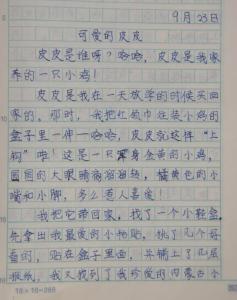 9月23日
可爱的皮皮
皮皮是谁呀？哈哈，皮皮是我家
养的一只小鸡！
皮皮是我在一天放学的时候买回
家的。那时，我把红领巾往装小鸡的
盒子里一伸一哈哈，皮皮就这样“上
钩”啦！这是一只浑身金黄的小鸡，
圆圆的大眼睛滴溜溜转，橘黄色的小
嘴和小脚，多么惹人喜爱！
我把它带回家，找了一个小鞋盒，
先拿出我最爱的小贴贴，挑了几个好
看的，贴在盒子里面，并铺上了几层
报纸，我又找到了我珍爱的内蒙古小
18×16=288